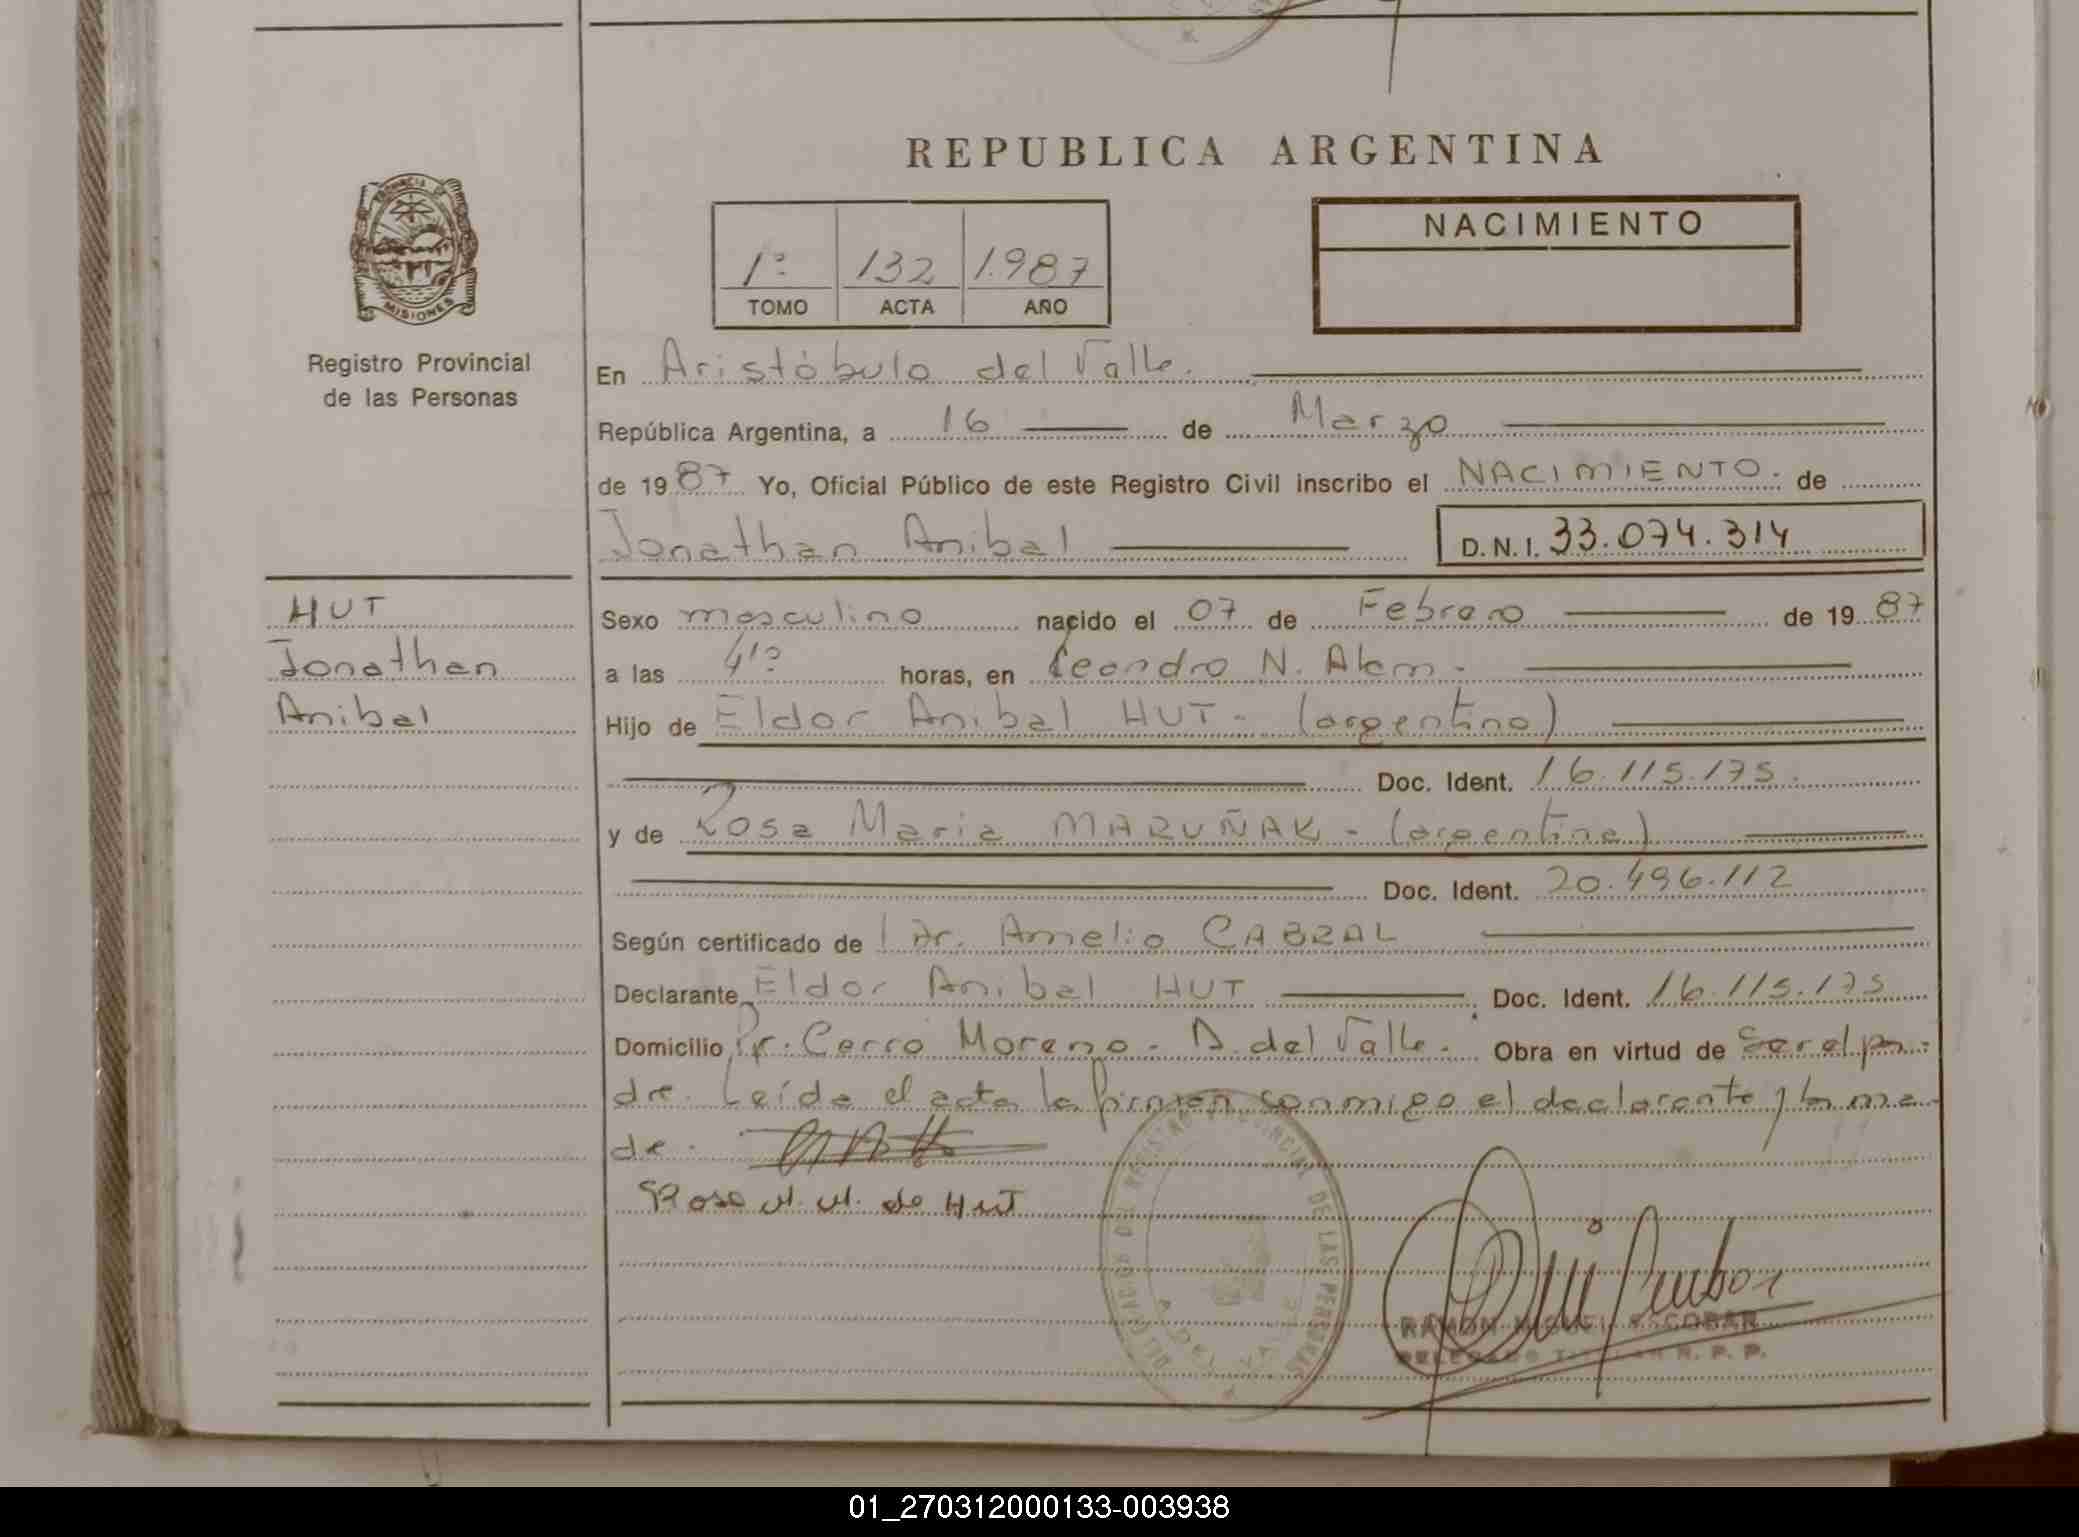 REPUBLICA ARGENTINA
PROVINCIA DE
MISIONES
Registro Provincial
de las Personas
1º 132 1.987
TOMO ACTA AÑO
NACIMIENTO
En Aristóbulo del Valle.
República Argentina, a 16 de Marzo
de 1987 Yo, Oficial Público de este Registro Civil inscribo el NACIMIENTO. de
Jonathan Anibal
D.N.I. 33.074.314
HUT
Jonathan
Anibal
Sexo masculino nacido el 07 de Febrero de 1987
a las horas, en Leandro N. Alem.
Hijo de Eldor Anibal HUT - (argentino)
Doc. Ident. 16.115.175.
y de Rosa Maria MAZUÑAK - (argentina)
Doc. Ident. 20.496.112
Según certificado de Dr. Amelio CABRAL
Declarante Eldor Anibal HUT Doc. Ident. 16.115.175
Domicilio Pr. Cerro Moreno - A. del Valle. Obra en virtud de Ser el pa-
dre. Leída el acta la firman conmigo el declarante y la ma-
de.
Rosa M. M. de HUT
DELEGACION DEL REGISTRO PROVINCIAL DE LAS PERSONAS
RAMON MIGUEL ESCOBAR
DELEGADO TITULAR R. P. P.
01_270312000133-003938